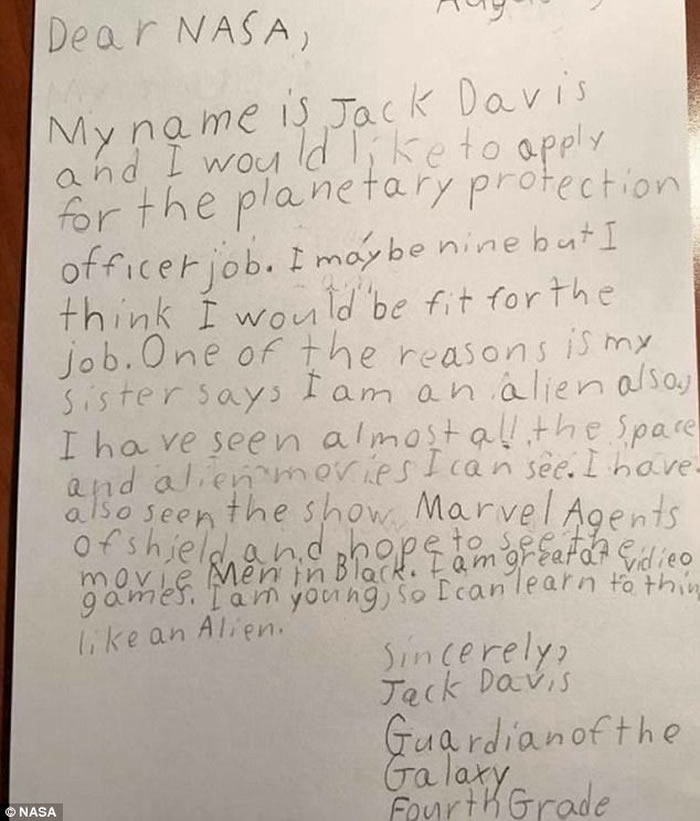 Dear NASA,
My name is Jack Davis
and I would like to apply
for the planetary protection
officer job. I may be nine but I
think I would be fit for the
job. One of the reasons is my
sister says I am an alien also,
I have seen almost all the space
and alien movies I can see. I have
also seen the show Marvel Agents
of shield and hope to see the
movie Men in Black. I am great at vidieo
games. I am young, so I can learn to thin
like an Alien.
Sincerely,
Jack Davis
Guardian of the
Galaxy
Fourth Grade
© NASA